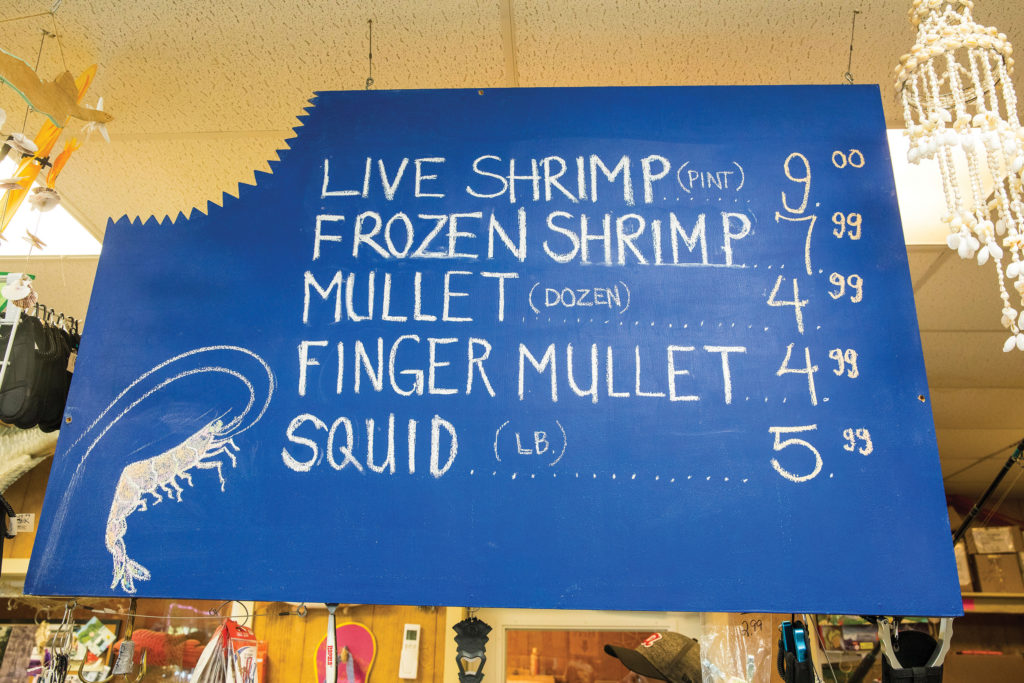 LIVE SHRIMP (PINT) 9.00
FROZEN SHRIMP 7.99
MULLET (DOZEN) 4.99
FINGER MULLET 4.99
SQUID (LB.) 5.99
2.99